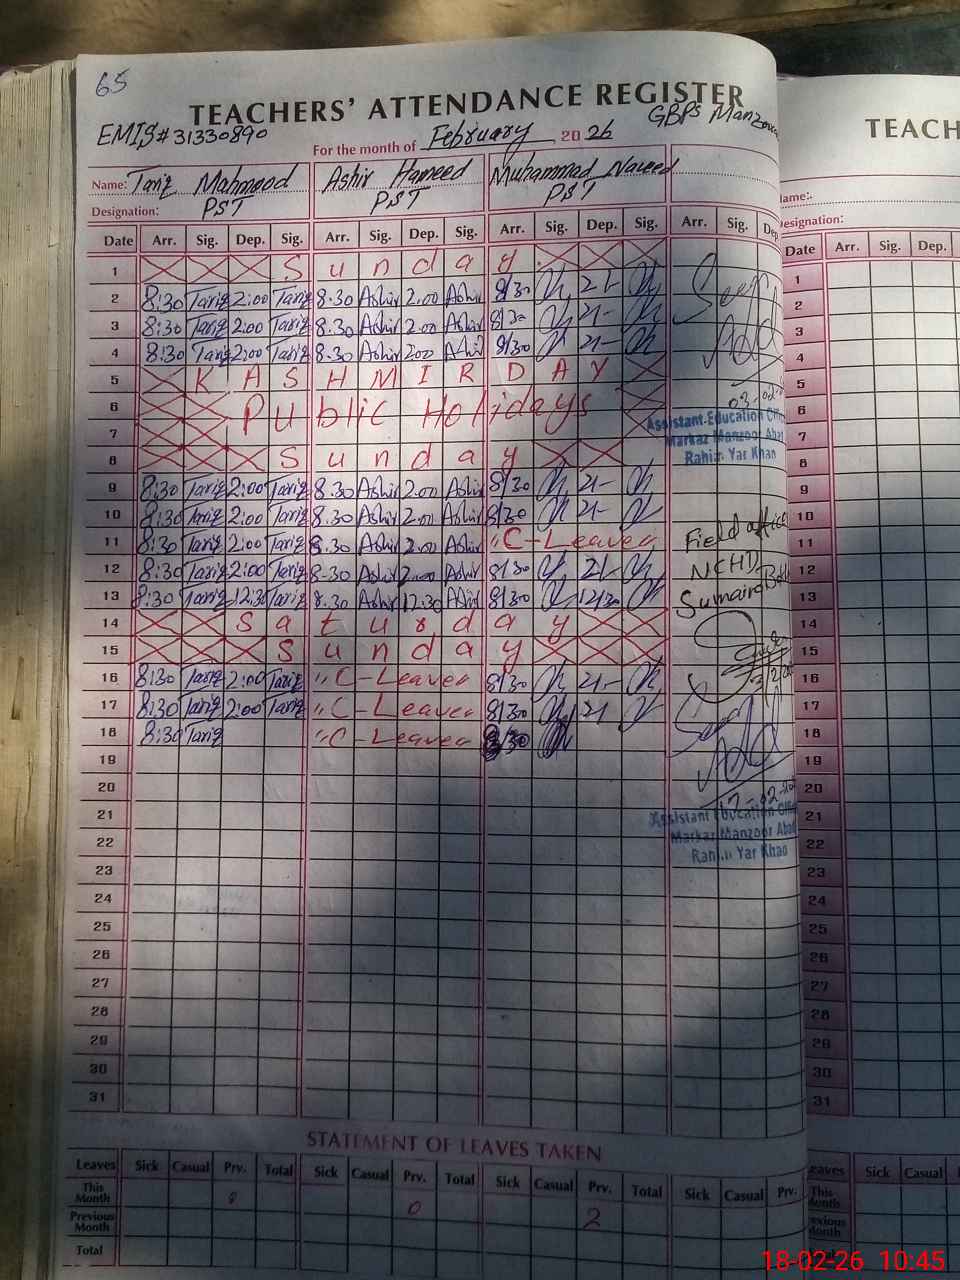 65
TEACHERS' ATTENDANCE REGISTER
EMIS# 31330890
GBPS
For the month of February 2026
Name: Tariq Mahmood Ashir Hameed Muhammad Naveed
Designation: PST PST PST
Date Arr. Sig. Dep. Sig. Arr. Sig. Dep. Sig. Arr. Sig. Dep. Sig. Arr. Sig. Dep.
1 Sunday
2 8:30 Tariq 2:00 Tariq 8.30 Ashir 2.00 Ashir 8/30 2/-
3 8:30 Tariq 2:00 Tariq 8.30 Ashir 2.00 Ashir 8/30 2/-
4 8:30 Tariq 2:00 Tariq 8.30 Ashir 2.00 Ashir 8/30 2/-
5 KASHMIR DAY
6 Public Holidays
7
8 Sunday
9 8:30 Tariq 2:00 Tariq 8.30 Ashir 2.00 Ashir 8/30 2/-
10 8:30 Tariq 2:00 Tariq 8.30 Ashir 2.00 Ashir 8/30 2/-
11 8:30 Tariq 2:00 Tariq 8.30 Ashir 2.00 Ashir "C-Leave"
12 8:30 Tariq 2:00 Tariq 8.30 Ashir 2.00 Ashir 8/30 2/-
13 8:30 Tariq 12:30 Tariq 8.30 Ashir 12:30 Ashir 8/30 12/30
14 Saturday
15 Sunday
16 8:30 Tariq 2:00 Tariq "C-Leave" 8/30 2/-
17 8:30 Tariq 2:00 Tariq "C-Leave" 8/30 2/-
18 8:30 Tariq "C-Leave" 8/30
19
20
21
22
23
24
25
26
27
28
29
30
31
Assistant Education
Markaz Manzoor Abad
Rahim Yar Khan
Field
NCHD
Sumaira
17-02-
Assistant Education
Markaz Manzoor Abad
Rahim Yar Khan
STATEMENT OF LEAVES TAKEN
Leaves Sick Casual Prv. Total Sick Casual Prv. Total Sick Casual Prv. Total Sick Casual Prv.
This Month 0
Previous Month 0 2
Total
TEACH
Name:
Designation:
Date Arr. Sig. Dep.
1
2
3
4
5
6
7
8
9
10
11
12
13
14
15
16
17
18
19
20
21
22
23
24
25
26
27
28
29
30
31
Leaves Sick Casual
This Month
Previous Month
18-02-26 10:45